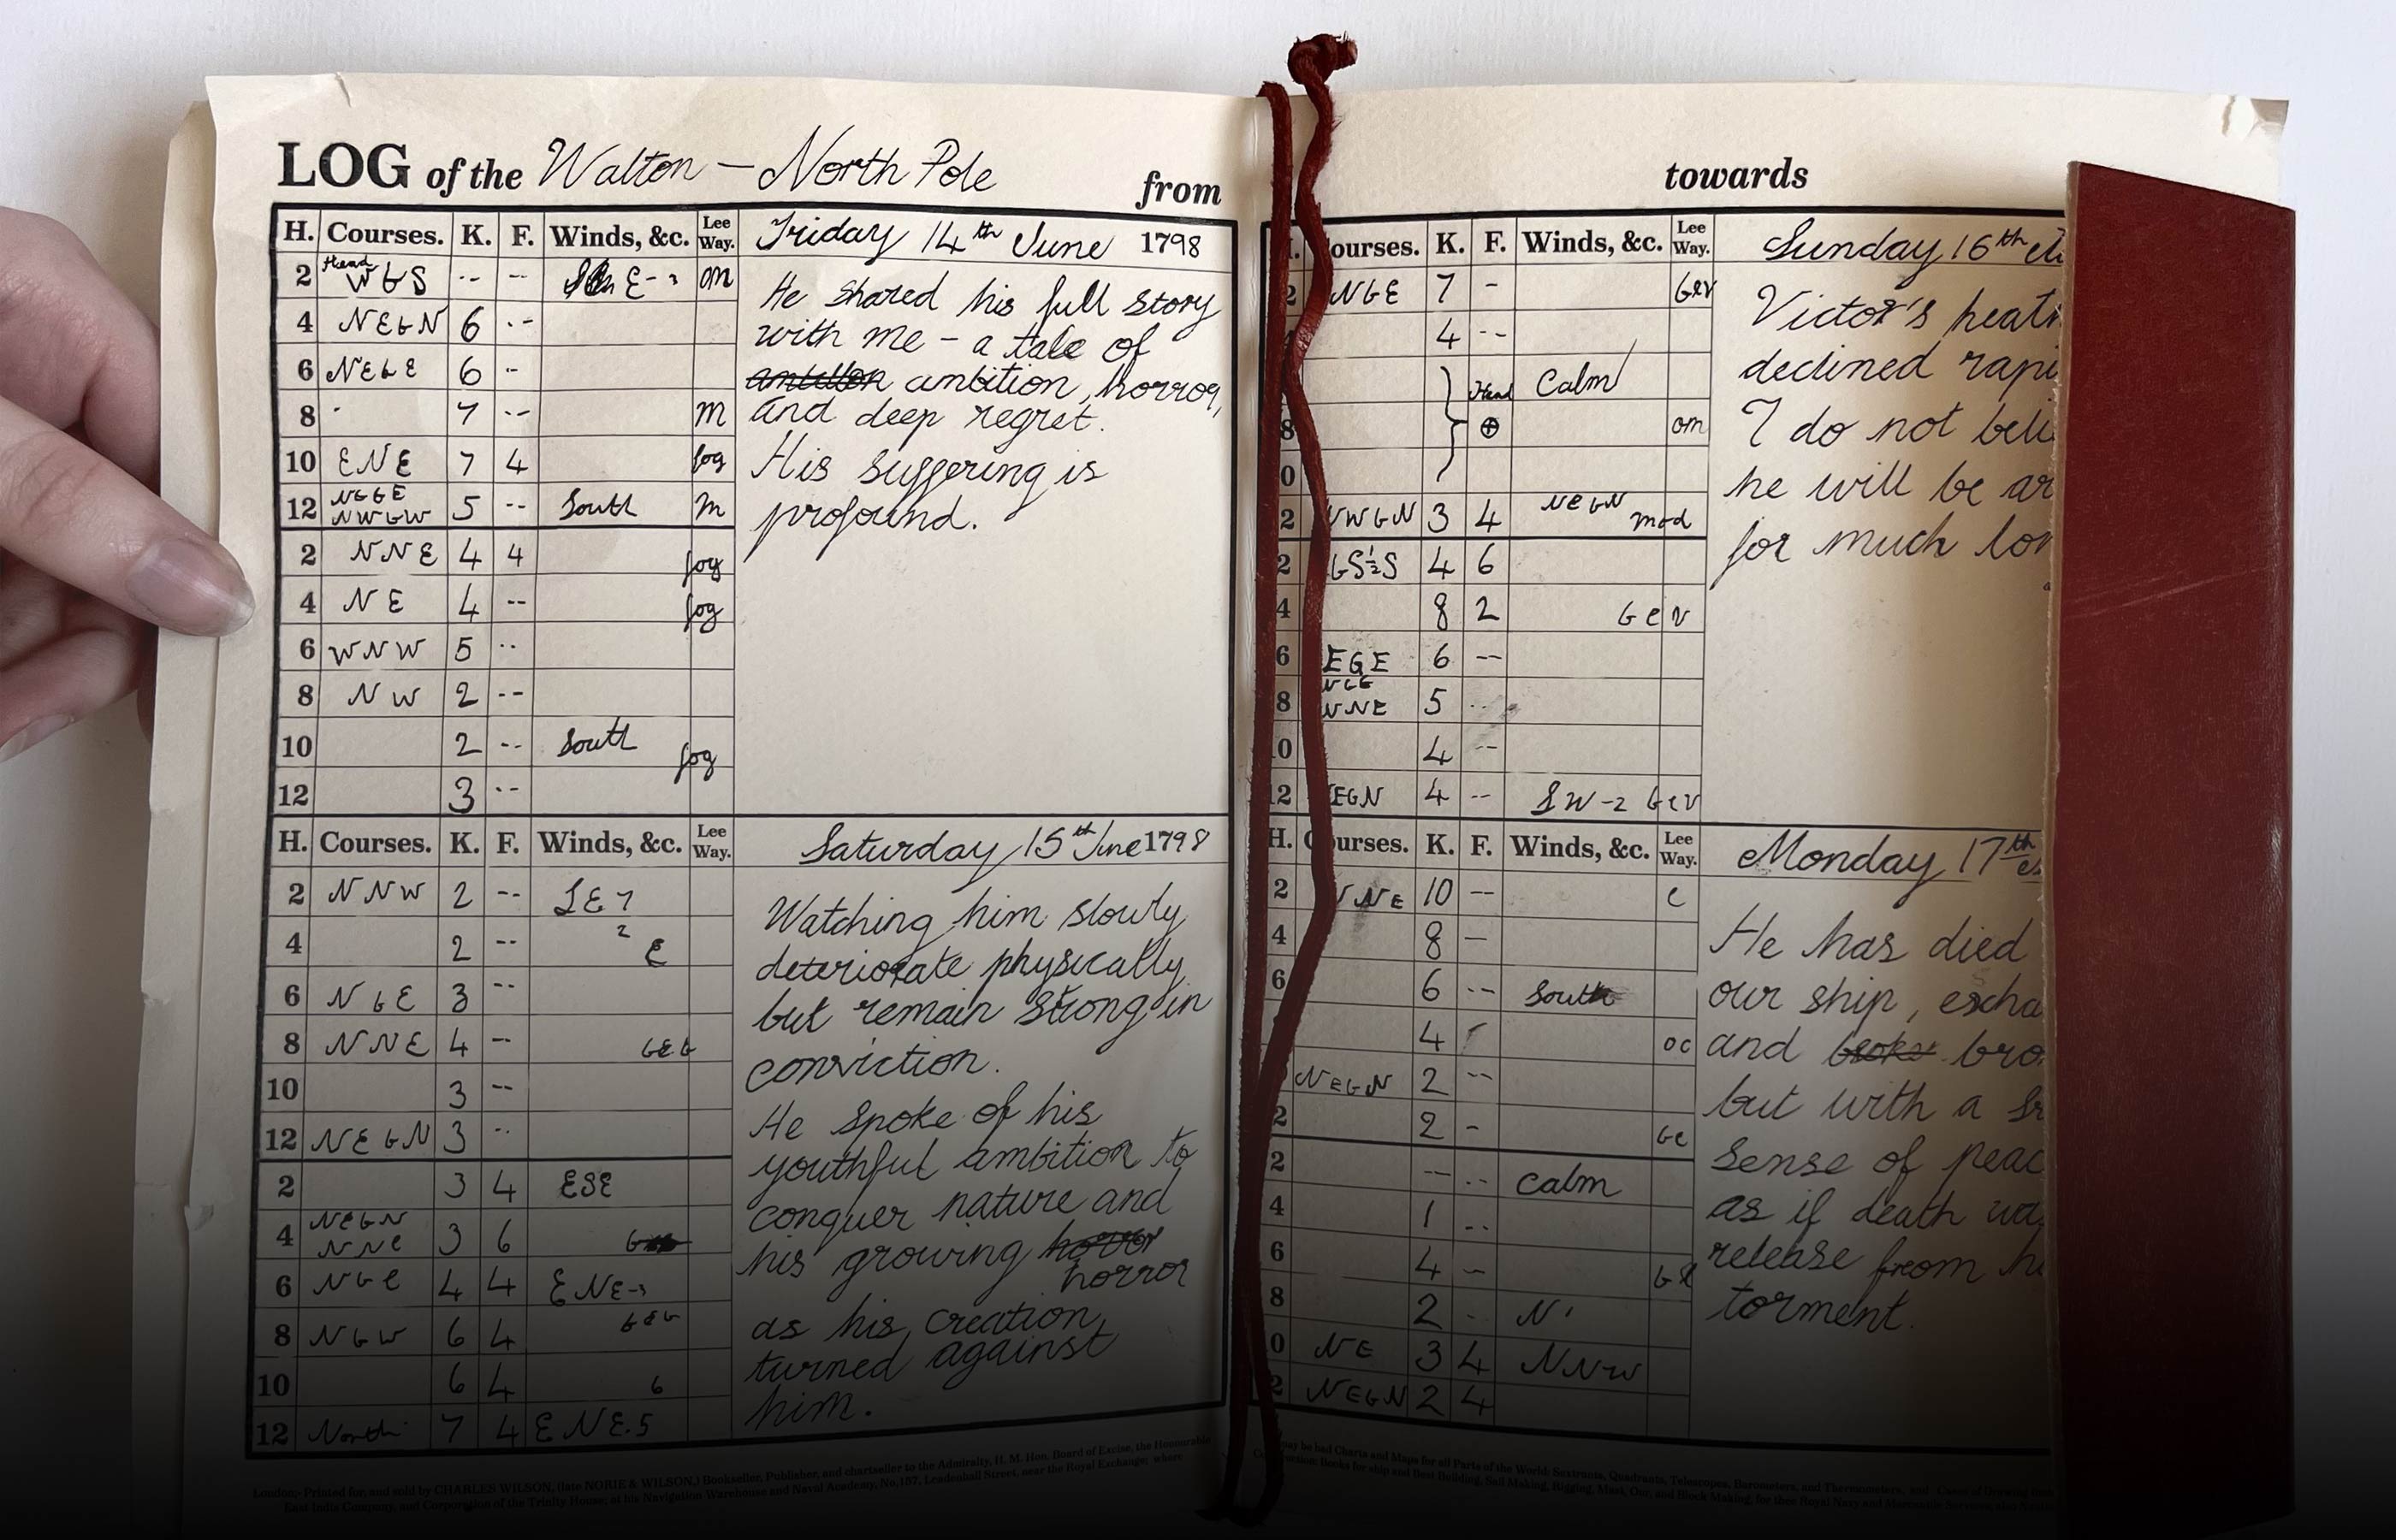 LOG of the Walton – North Pole from
H. Courses. K. F. Winds, &c. Lee Way. Friday 14th June 1798
2 Head WGS -- -- E- om
4 NEGN 6 --
6 NEGE 6 --
8 7 -- m
10 ENE 7 4 fog
12 NGGE NWGW 5 -- South m
2 NNE 4 4 fog
4 NE 4 -- fog
6 WNW 5 --
8 NW 2 --
10 2 -- South fog
12 3 --
He shared his full story
with me – a tale of
ambition, horror,
and deep regret.
His suffering is
profound.
H. Courses. K. F. Winds, &c. Lee Way. Saturday 15th June 1798
2 NNW 2 -- SE 7
4 2 -- 2 E
6 NGE 3 --
8 NNE 4 -- GEG
10 3 --
12 NEGN 3 --
2 3 4 ESE
4 NEGN NNE 3 6
6 NGE 4 4 ENE-3
8 NGW 6 4 GEG
10 6 4 6
12 North 7 4 ENE.5
Watching him slowly
deteriorate physically
but remain strong in
conviction.
He spoke of his
youthful ambition to
conquer nature and
his growing horror
horror
as his creation
turned against
him.
London;- Printed for, and sold by CHARLES WILSON, (late NORIE & WILSON,) Bookseller, Publisher, and chartseller to the Admiralty, H. M. Hon. Board of Excise, the Honourable
East-India Company, and Corporation of the Trinity House; at his Navigation Warehouse and Naval Academy, No,187, Leadenhall Street, near the Royal Exchange; where
towards
ourses. K. F. Winds, &c. Lee Way. Sunday 16th
2 NGE 7 - Gev
4 --
Head Calm
8 ⊕ om
0
2 VWGN 3 4 NEGN mod
2 GS½S 4 6
4 8 2 Gev
6 EGE 6 --
8 NGE NNE 5 --
10 4 --
12 EGN 4 -- SW-2 Gev
Victor's heat
declined rapi
I do not beli
he will be ar
for much lon
H. Courses. K. F. Winds, &c. Lee Way. Monday 17th
2 NNE 10 -- c
4 8 –
6 6 -- South
4 oc
NEGN 2 --
2 2 - Ge
2 -- -- Calm
4 1 --
6 4 --
8 2 - N
0 NE 3 4 NNW
2 NEGN 2 4
He has died
our ship, exha
and broke bro
but with a
sense of peac
as if death wa
release from hi
torment.
may be had Charts and Maps for all Parts of the World; Sextrants, Quadrants, Telescopes, Barometers, and Thermometers, and
Books for ship and Boat Building, Sail Making, Rigging, Mast, Oar, and Block Making,